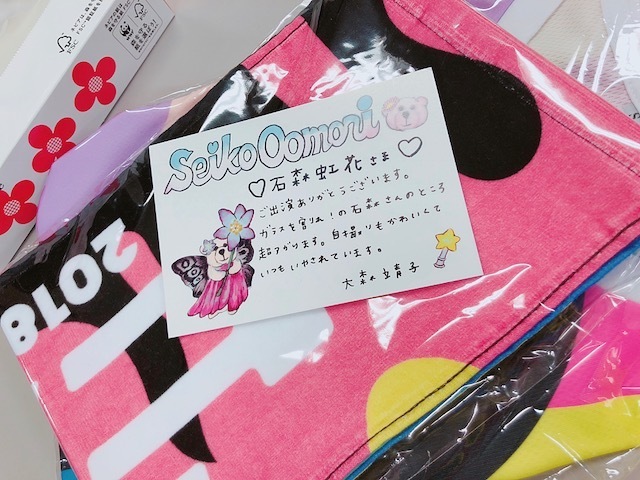 Seiko Oomori
♡石森虹花さま♡
ご出演ありがとうございます。
ガラスを割れ!の石森さんのところ
超アガります。自撮りもかわいくて
いつもいやされています。
大森靖子
2018
FSC
WWF